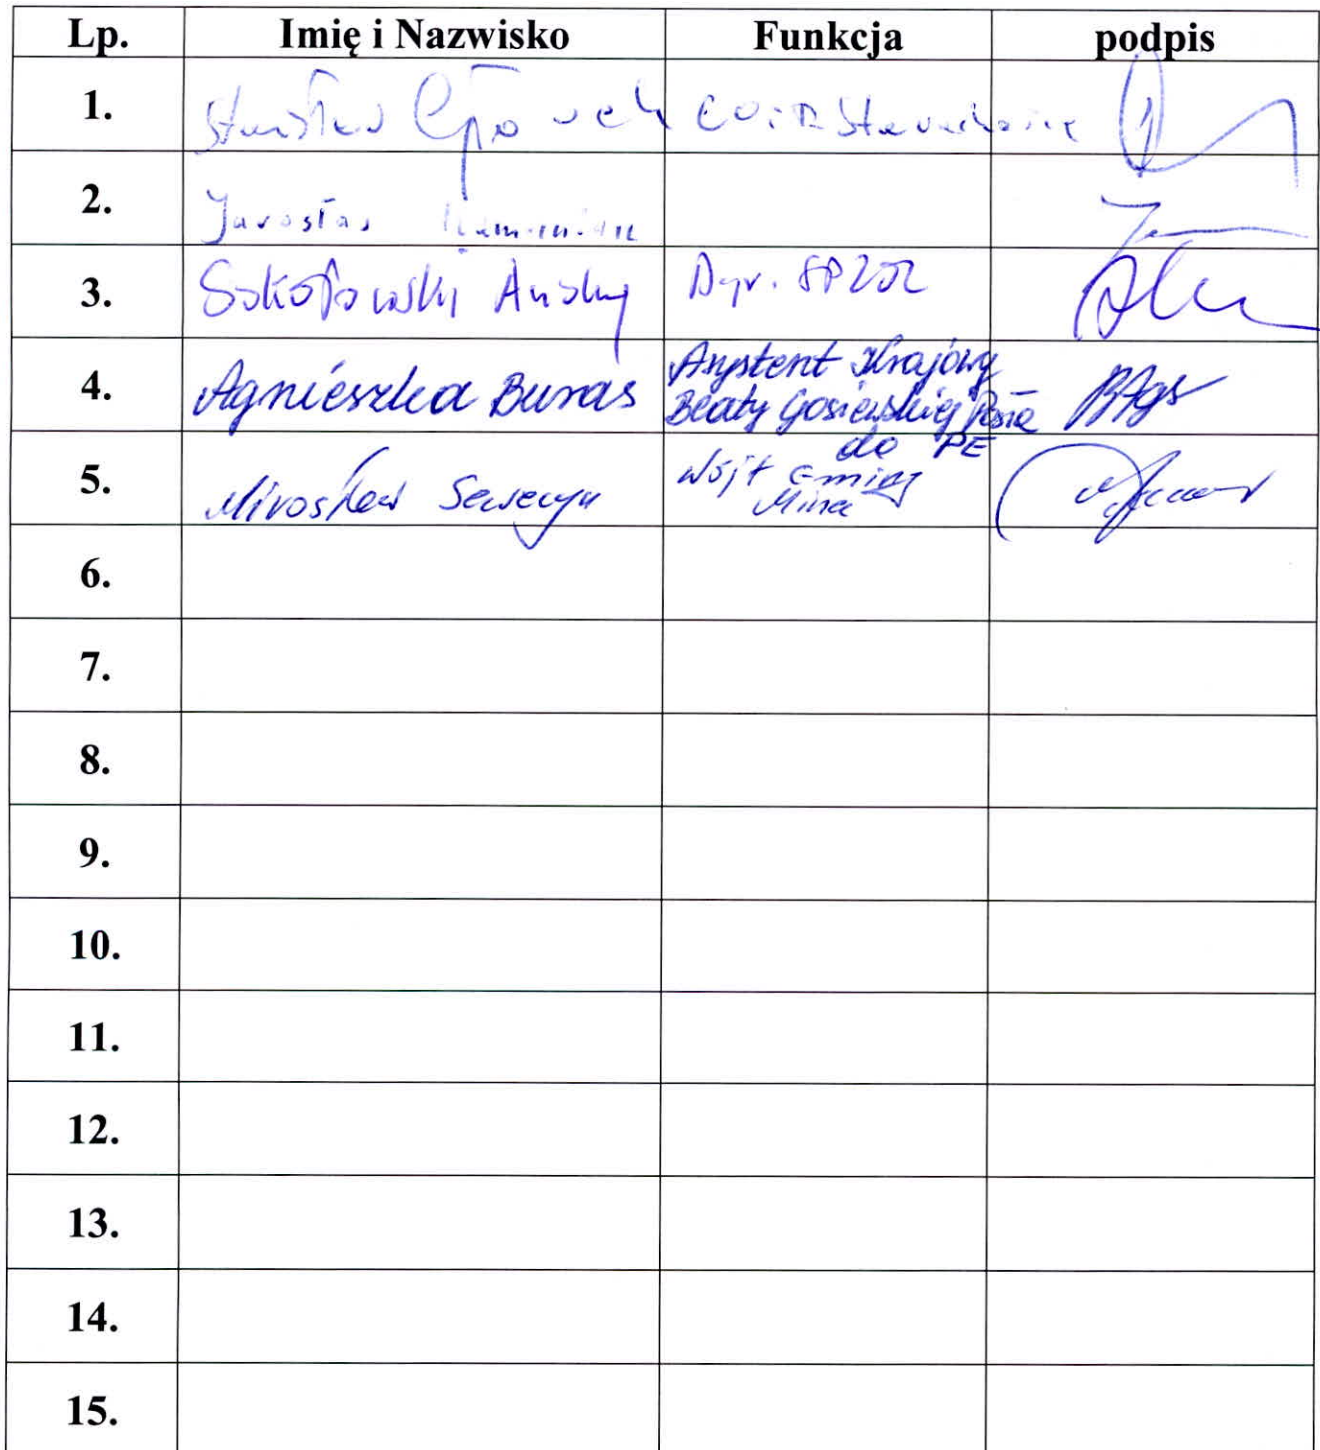 Lp. Imię i Nazwisko Funkcja podpis
1. Starachowice
2. Jarosław
3. Sokołowski Andrzej Dyr. SPZOZ
4. Agnieszka Buras Asystent Krajowy
Beaty Gosiewskiej Poseł
do PE
5. Mirosław Seweryn Wójt Gminy
Mirzec
6.
7.
8.
9.
10.
11.
12.
13.
14.
15.